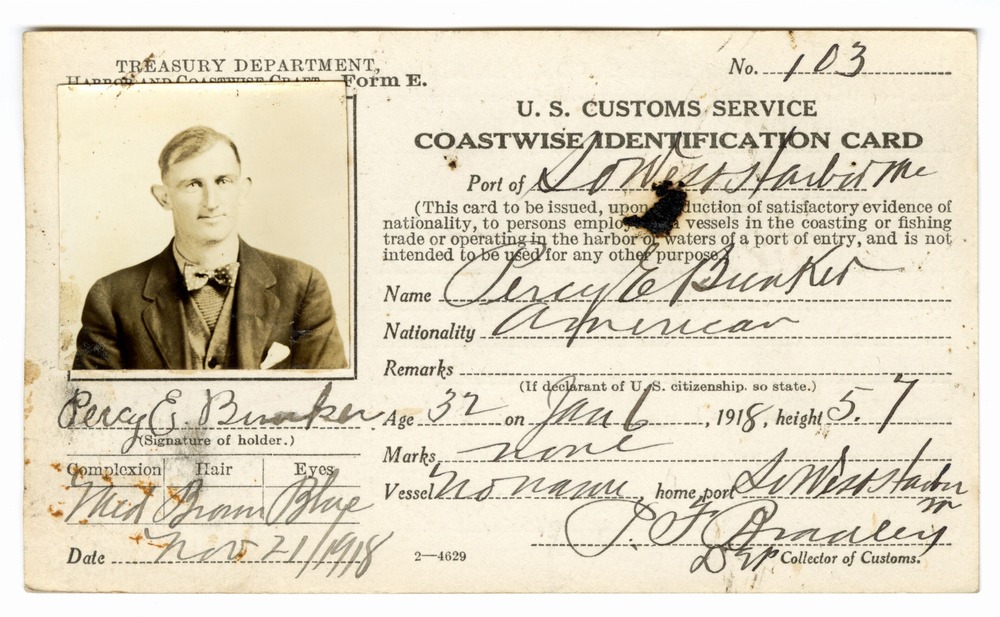 TREASURY DEPARTMENT,
HARBOR AND COASTWISE CRAFT. Form E.
No. 103
U. S. CUSTOMS SERVICE
COASTWISE IDENTIFICATION CARD
Port of So West Harbor Me
(This card to be issued, upon duction of satisfactory evidence of
nationality, to persons emplo vessels in the coasting or fishing
trade or operating in the harbor or waters of a port of entry, and is not
intended to be used for any other purpose.)
Name Percy E Bunker
Nationality American
Remarks
(If declarant of U. S. citizenship, so state.)
Percy E. Bunker
(Signature of holder.)
Age 32 on Jan 6, 1918, height 5.7
Marks none
Complexion Hair Eyes
Med Brown Blue
Vessel No name, home port So West Harbor
m
P. F. Bradley
Date Nov 21/1918
2—4629
Dep Collector of Customs.